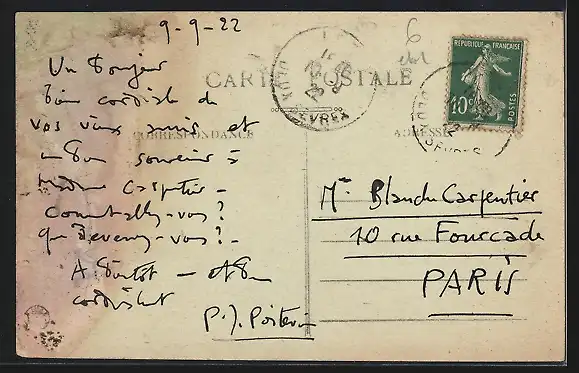 9-9-22
6
CARTE POSTALE
RÉPUBLIQUE FRANÇAISE
10c
POSTES
SÈVRES
SÈVRES
CORRESPONDANCE
ADRESSE
Un bonjour
bien cordial de
vos vieux amis et
un bon souvenir à
Madame Carpentier -
Comment allez-vous?
que devenez-vous? -
A bientôt - et bien
cordialement
P. J. Poitevin
Mr Blandin Carpentier
10 rue Fourcade
PARIS